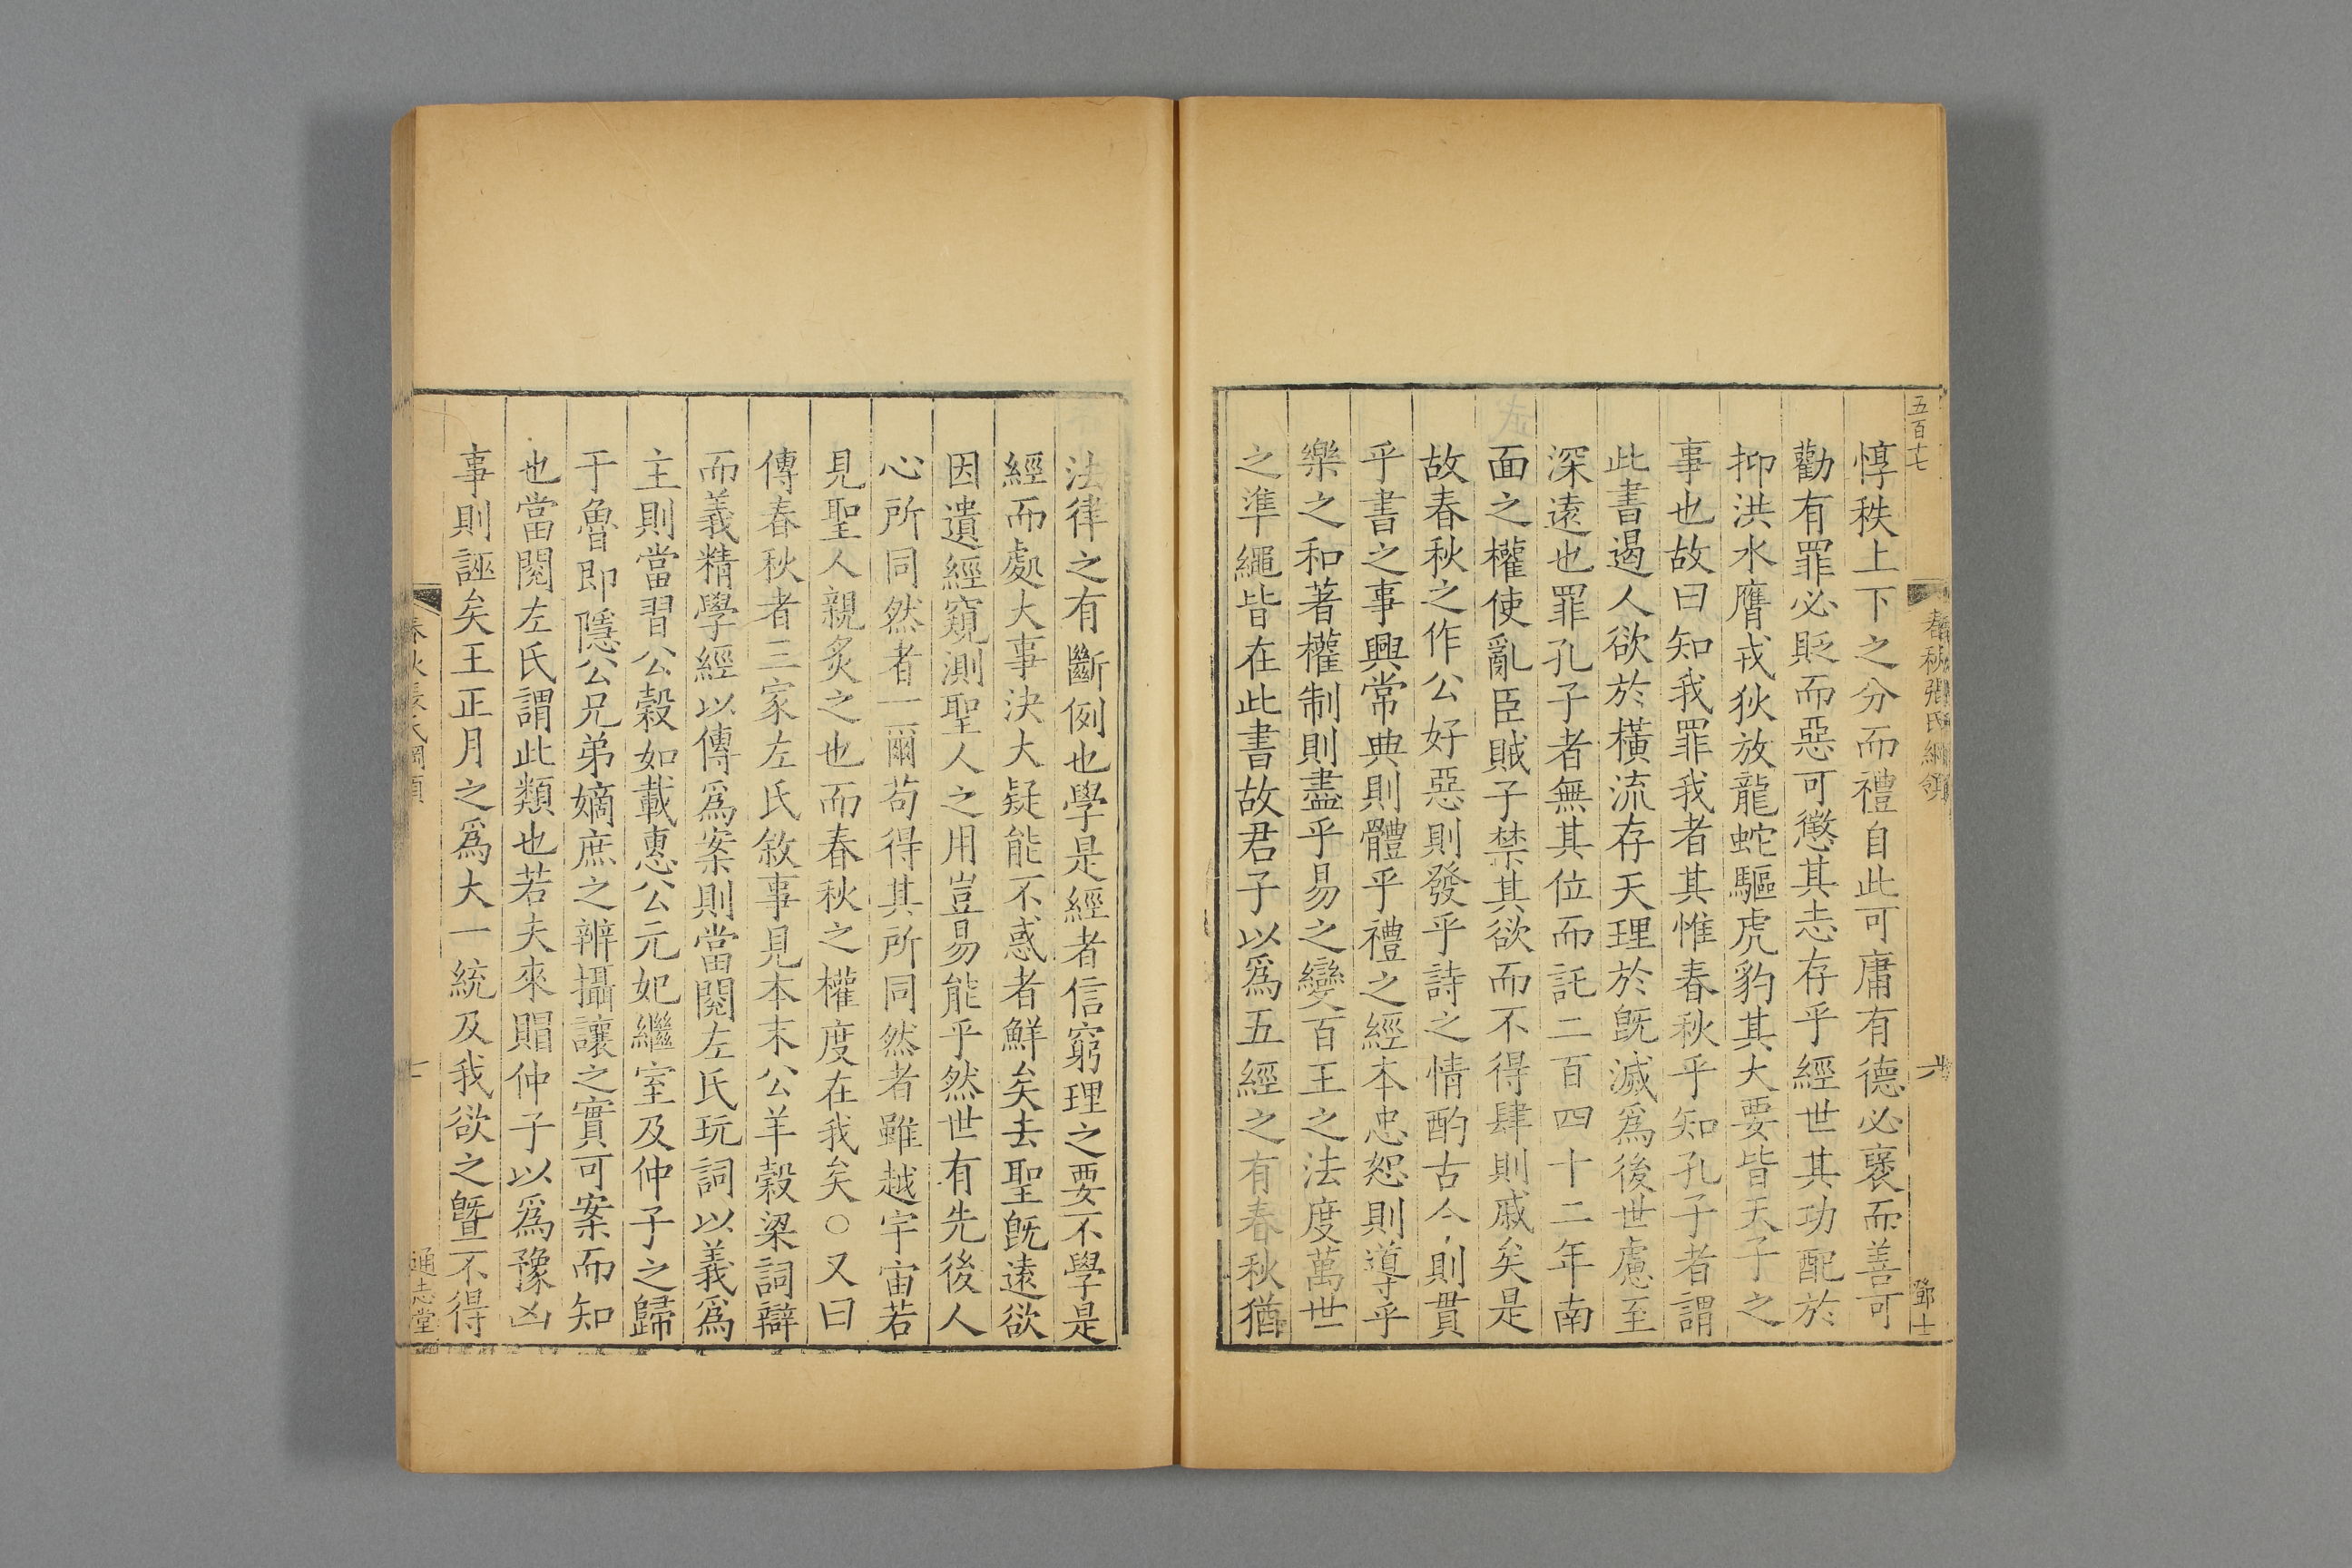 五百十七
春秋張氏綱領
六
鄧士
惇秩上下之分而禮自此可庸有德必褒而善可
勸有罪必貶而惡可懲其志存乎經世其功配於
抑洪水膺戎狄放龍蛇驅虎豹其大要皆天子之
事也故曰知我罪我者其惟春秋乎知孔子者謂
此書遏人欲於橫流存天理於旣滅爲後世慮至
深遠也罪孔子者無其位而託二百四十二年南
面之權使亂臣賊子禁其欲而不得肆則戚矣是
故春秋之作公好惡則發乎詩之情酌古今則貫
乎書之事興常典則體乎禮之經本忠恕則導乎
樂之和著權制則盡乎易之變百王之法度萬世
之準繩皆在此書故君子以爲五經之有春秋猶
法律之有斷例也學是經者信窮理之要不學是
經而處大事決大疑能不惑者鮮矣去聖旣遠欲
因遺經窺測聖人之用豈易能乎然世有先後人
心所同然者一爾苟得其所同然者雖越宇宙若
見聖人親炙之也而春秋之權度在我矣○又曰
傳春秋者三家左氏敘事見本末公羊穀梁詞辯
而義精學經以傳爲案則當閱左氏玩詞以義爲
主則當習公穀如載惠公元妃繼室及仲子之歸
于魯即隱公兄弟嫡庶之辨攝讓之實可案而知
也當閱左氏謂此類也若夫來賵仲子以爲豫凶
事則誣矣王正月之爲大一統及我欲之曁不得
春秋張氏綱領
通志堂